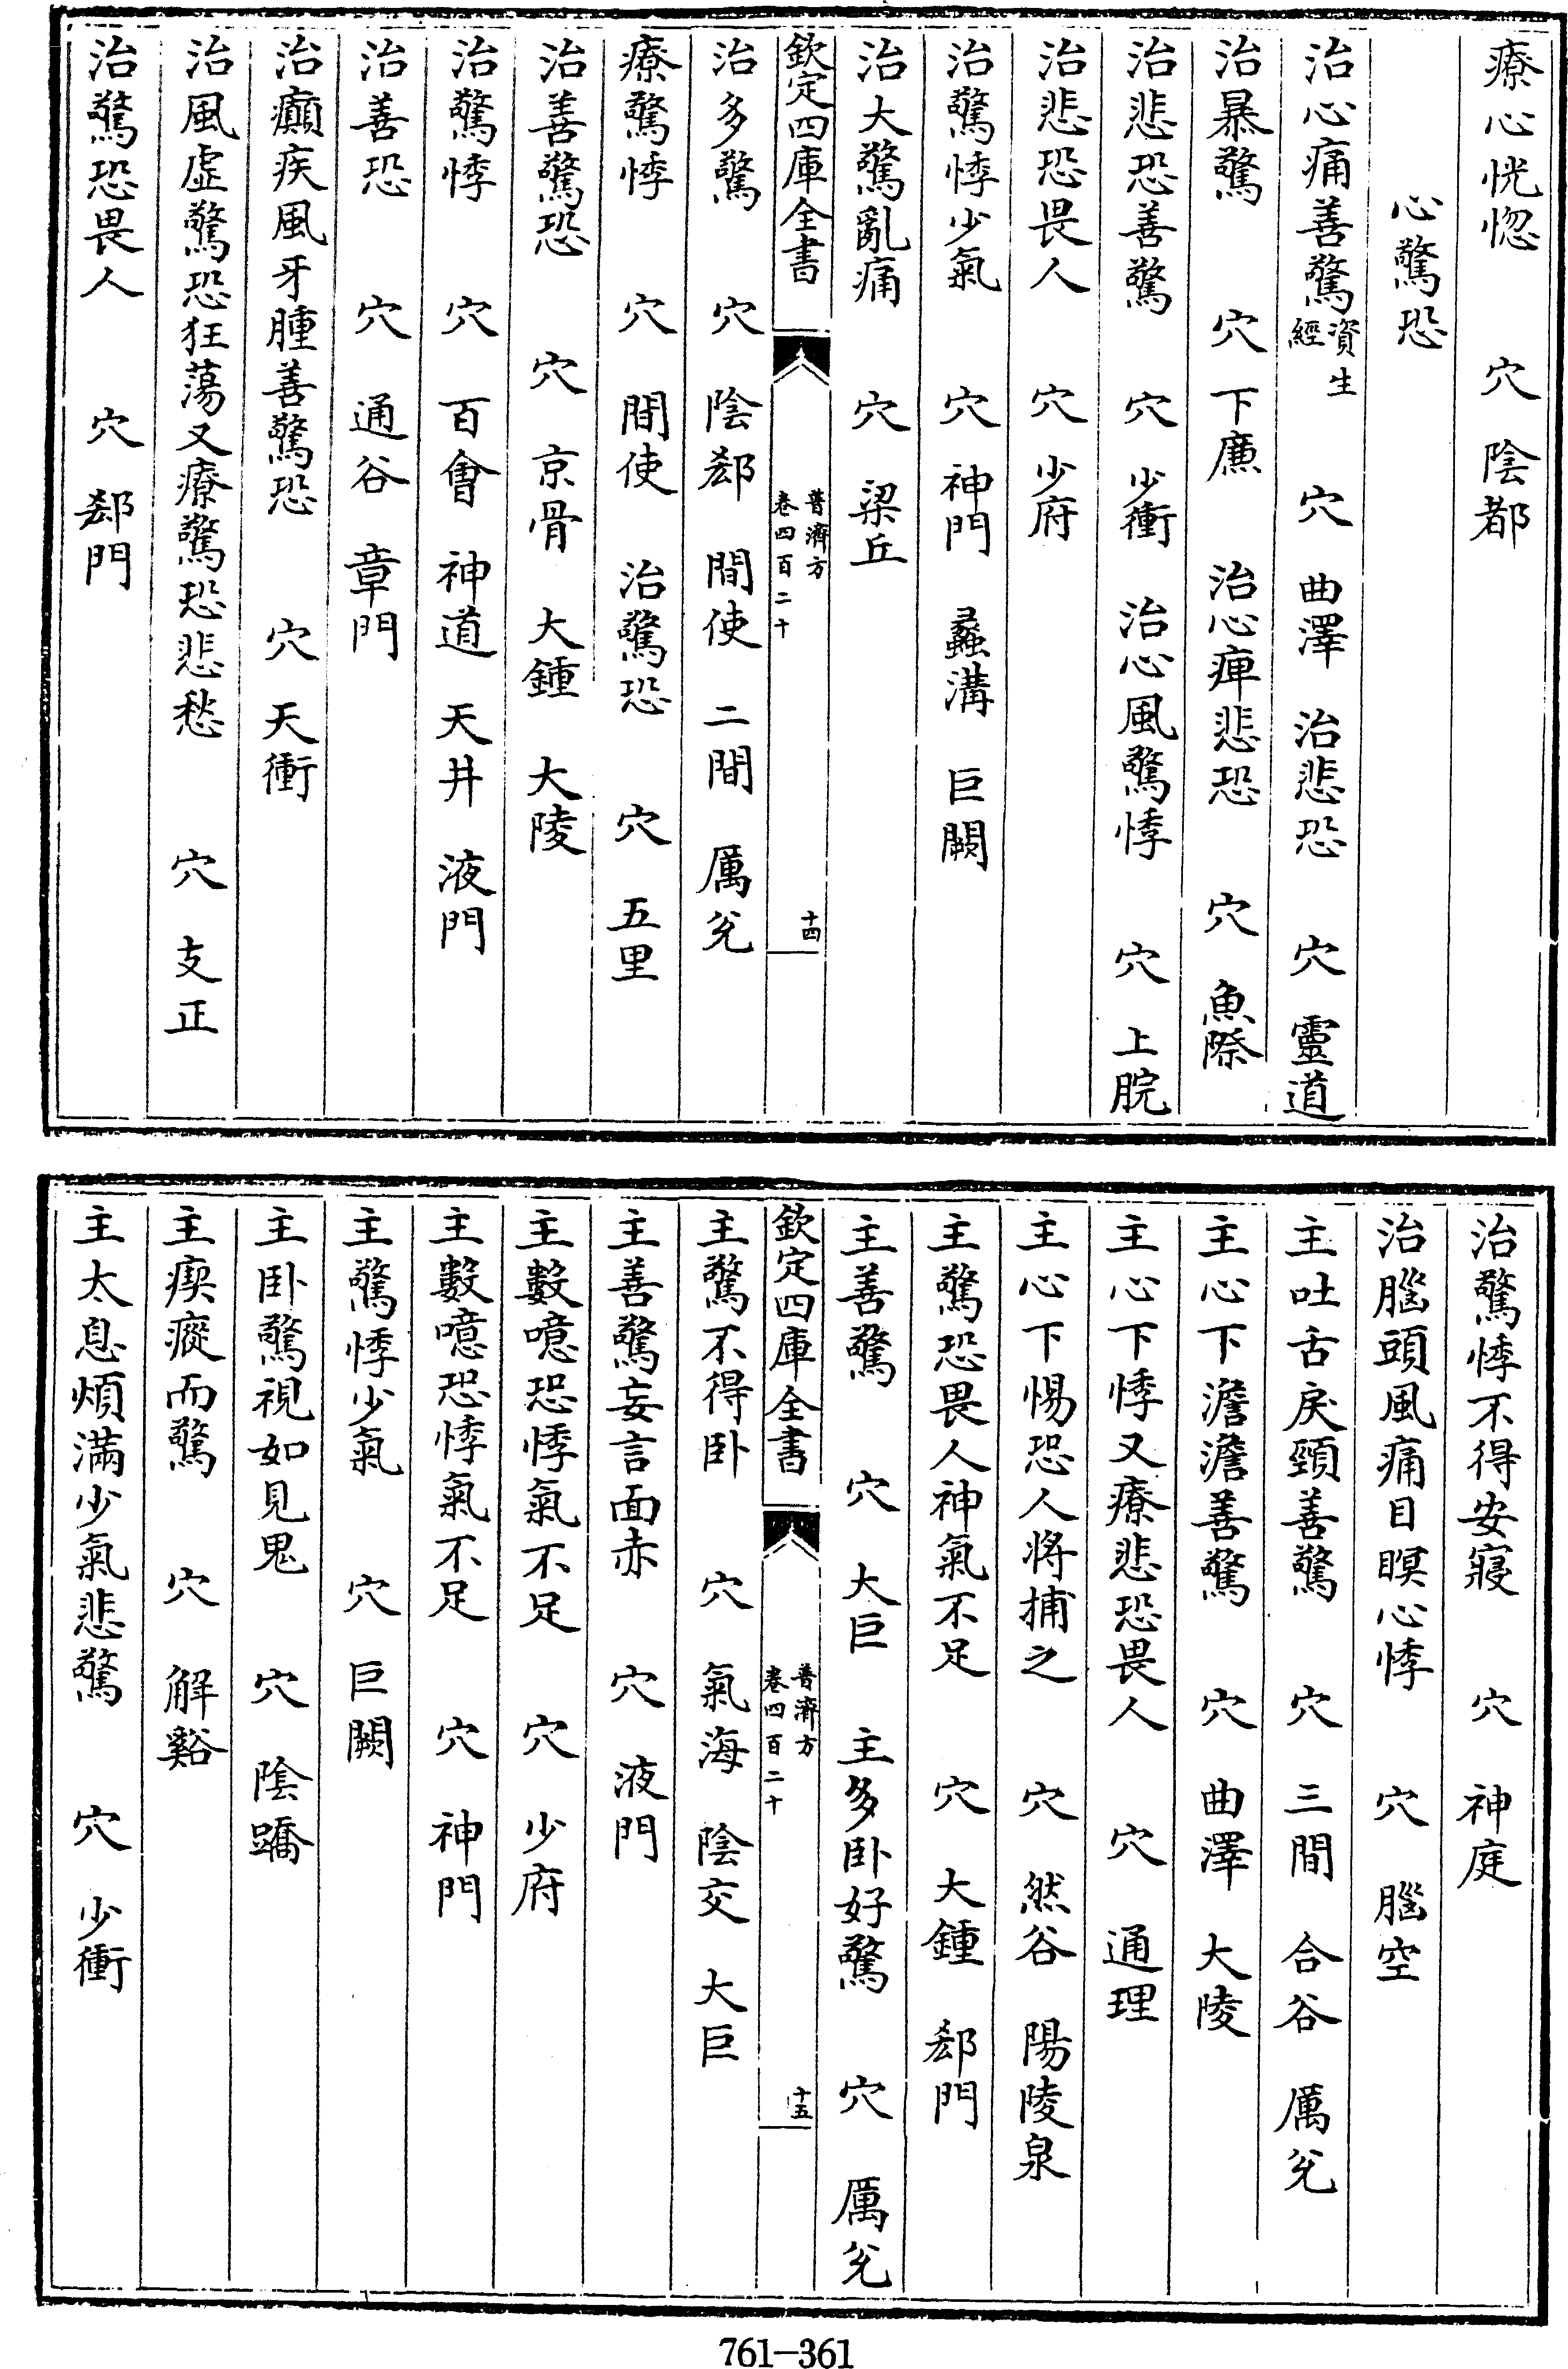 療心恍惚　穴　陰都
心驚恐
治心痛善驚資生經　穴　曲澤　治悲恐　穴　靈道
治暴驚　穴　下廉　治心痺悲恐　穴　魚際
治悲恐善驚　穴　少衝　治心風驚悸　穴　上脘
治悲恐畏人　穴　少府
治驚悸少氣　穴　神門　蠡溝　巨闕
治大驚亂痛　穴　梁丘
欽定四庫全書　普濟方卷四百二十　十四
治多驚　穴　陰郄　間使　二間　厲兌
療驚悸　穴　間使　治驚恐　穴　五里
治善驚恐　穴　京骨　大鍾　大陵
治驚悸　穴　百會　神道　天井　液門
治善恐　穴　通谷　章門
治癲疾風牙腫善驚恐　穴　天衝
治風虛驚恐狂蕩又療驚恐悲愁　穴　支正
治驚恐畏人　穴　郄門
治驚悸不得安寢　穴　神庭
治腦頭風痛目瞑心悸　穴　腦空
主吐舌戾頸善驚　穴　三間　合谷　厲兌
主心下澹澹善驚　穴　曲澤　大陵
主心下悸又療悲恐畏人　穴　通理
主心下惕恐人將捕之　穴　然谷　陽陵泉
主驚恐畏人神氣不足　穴　大鍾　郄門
主善驚　穴　大巨　主多卧好驚　穴　厲兌
欽定四庫全書　普濟方卷四百二十　十五
主驚不得卧　穴　氣海　陰交　大巨
主善驚妄言面赤　穴　液門
主數噫恐悸氣不足　穴　少府
主數噫恐悸氣不足　穴　神門
主驚悸少氣　穴　巨闕
主卧驚視如見鬼　穴　陰蹻
主瘈瘲而驚　穴　解谿
主太息煩滿少氣悲驚　穴　少衝
761-361